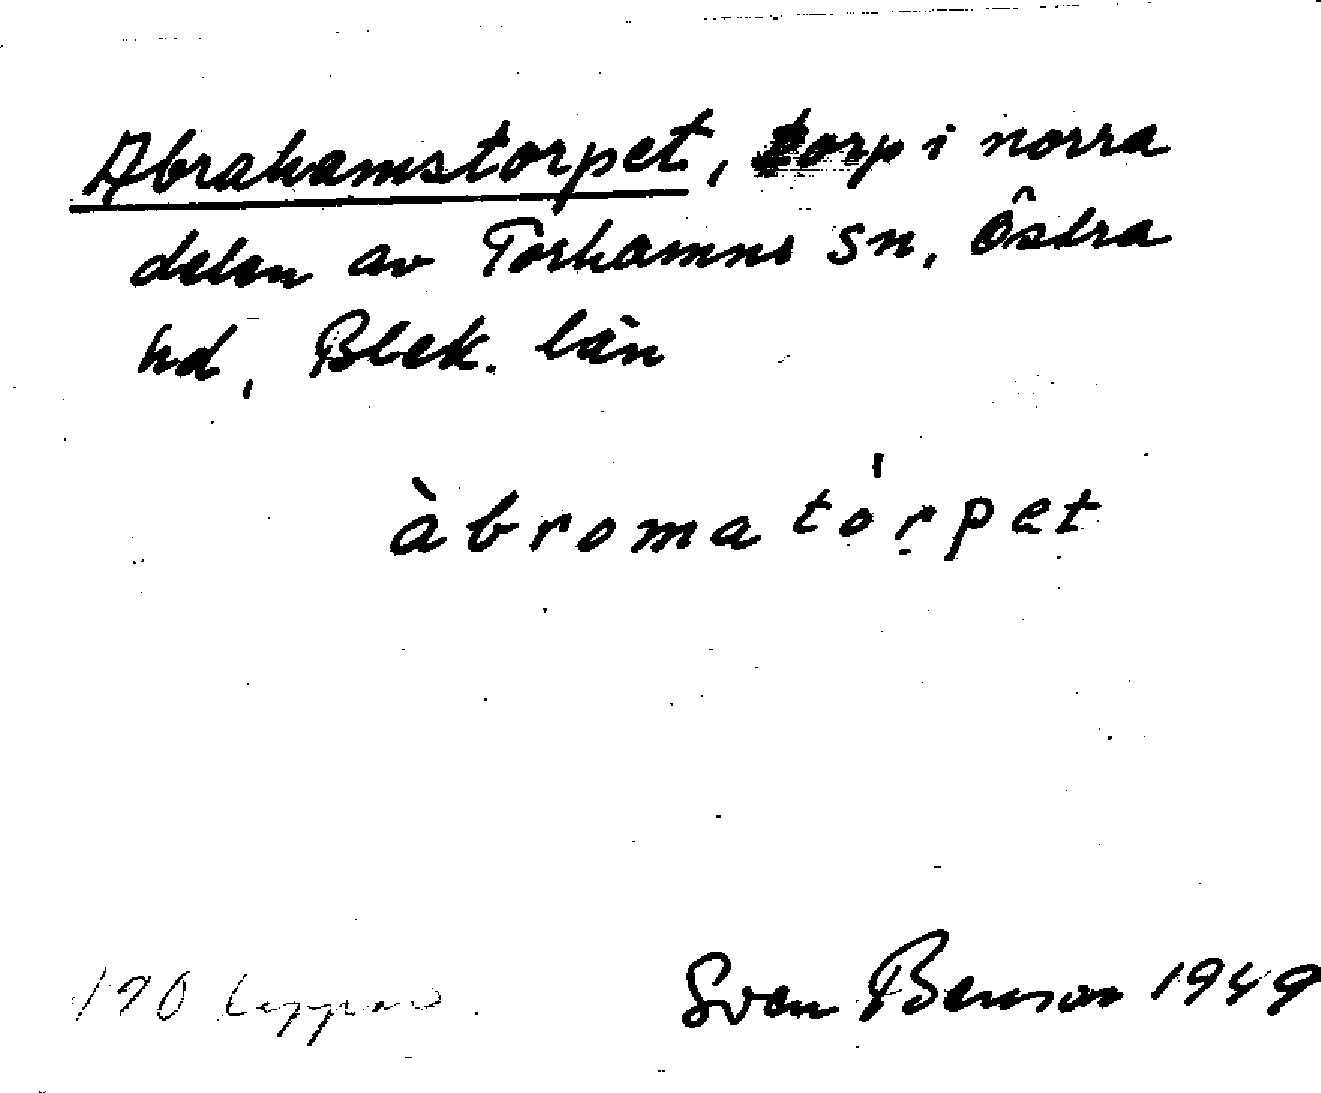 Abrahamstorpet, torp i norra
delen av Torhamns sn, Östra
hd, Blek. län
àbromatórpet
190 lappar.
Sven Benson 1949